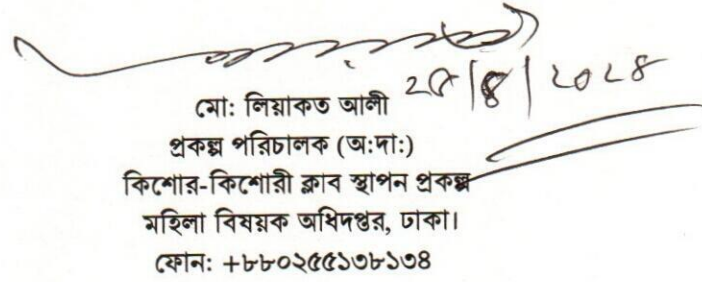 ২৫/৪/২০২৪
মো: লিয়াকত আলী
প্রকল্প পরিচালক (অ:দা:)
কিশোর-কিশোরী ক্লাব স্থাপন প্রকল্প
মহিলা বিষয়ক অধিদপ্তর, ঢাকা।
ফোন: +৮৮০২৫৫১৩৮১৩৪